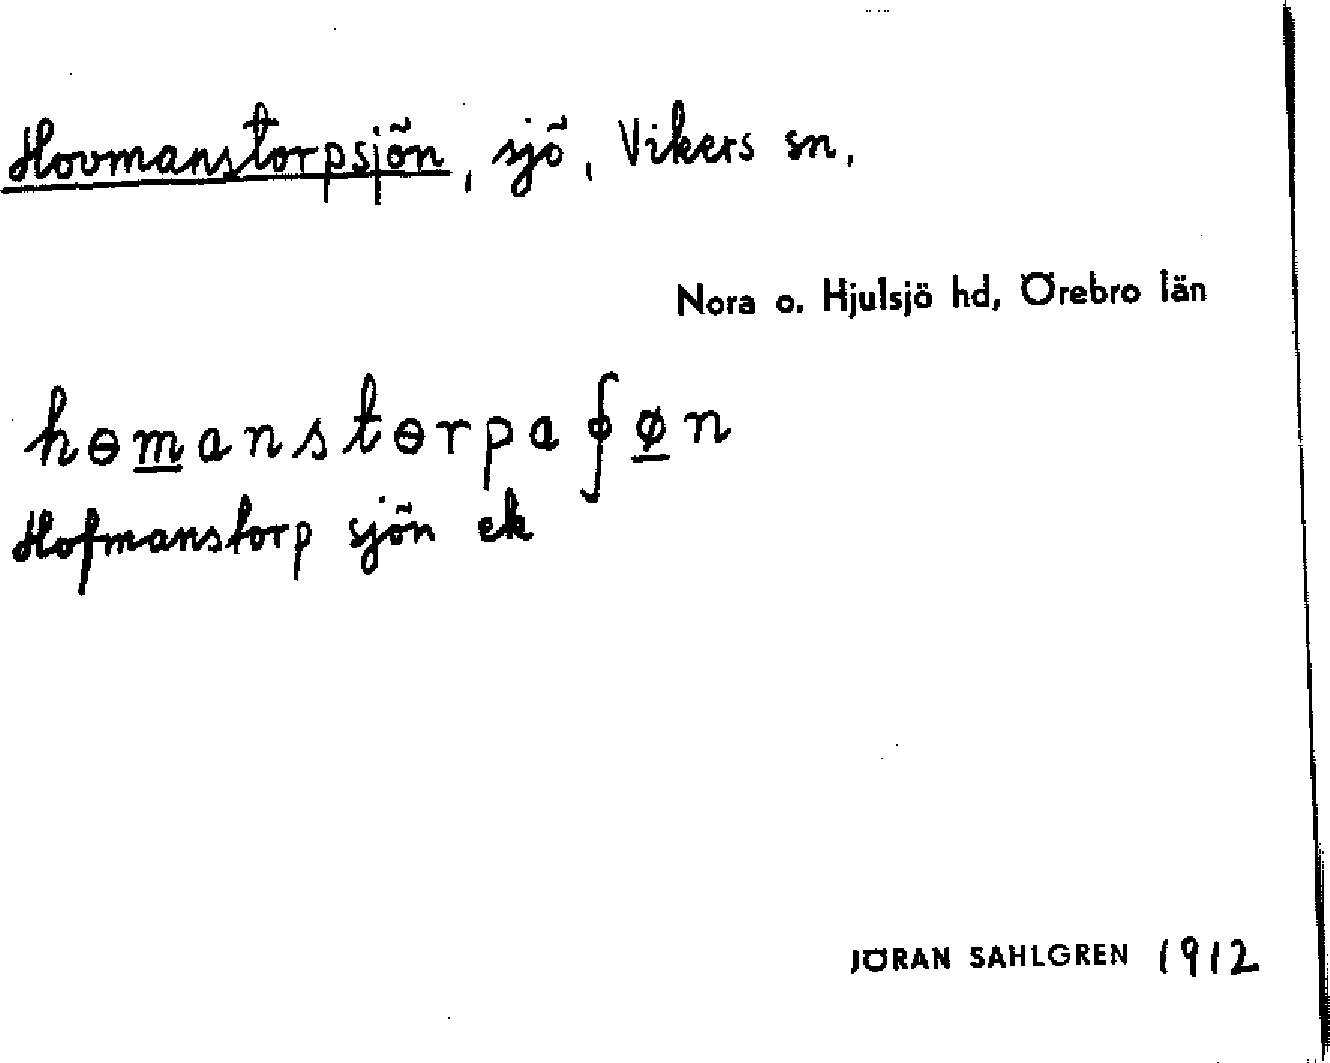 Hovmanstorpsjön, sjö, Vikers sn,
Nora o. Hjulsjö hd, Örebro län
hɵm̲anstɵrpa ʄø̲n
Hofmanstorp sjön ek
JÖRAN SAHLGREN 1912